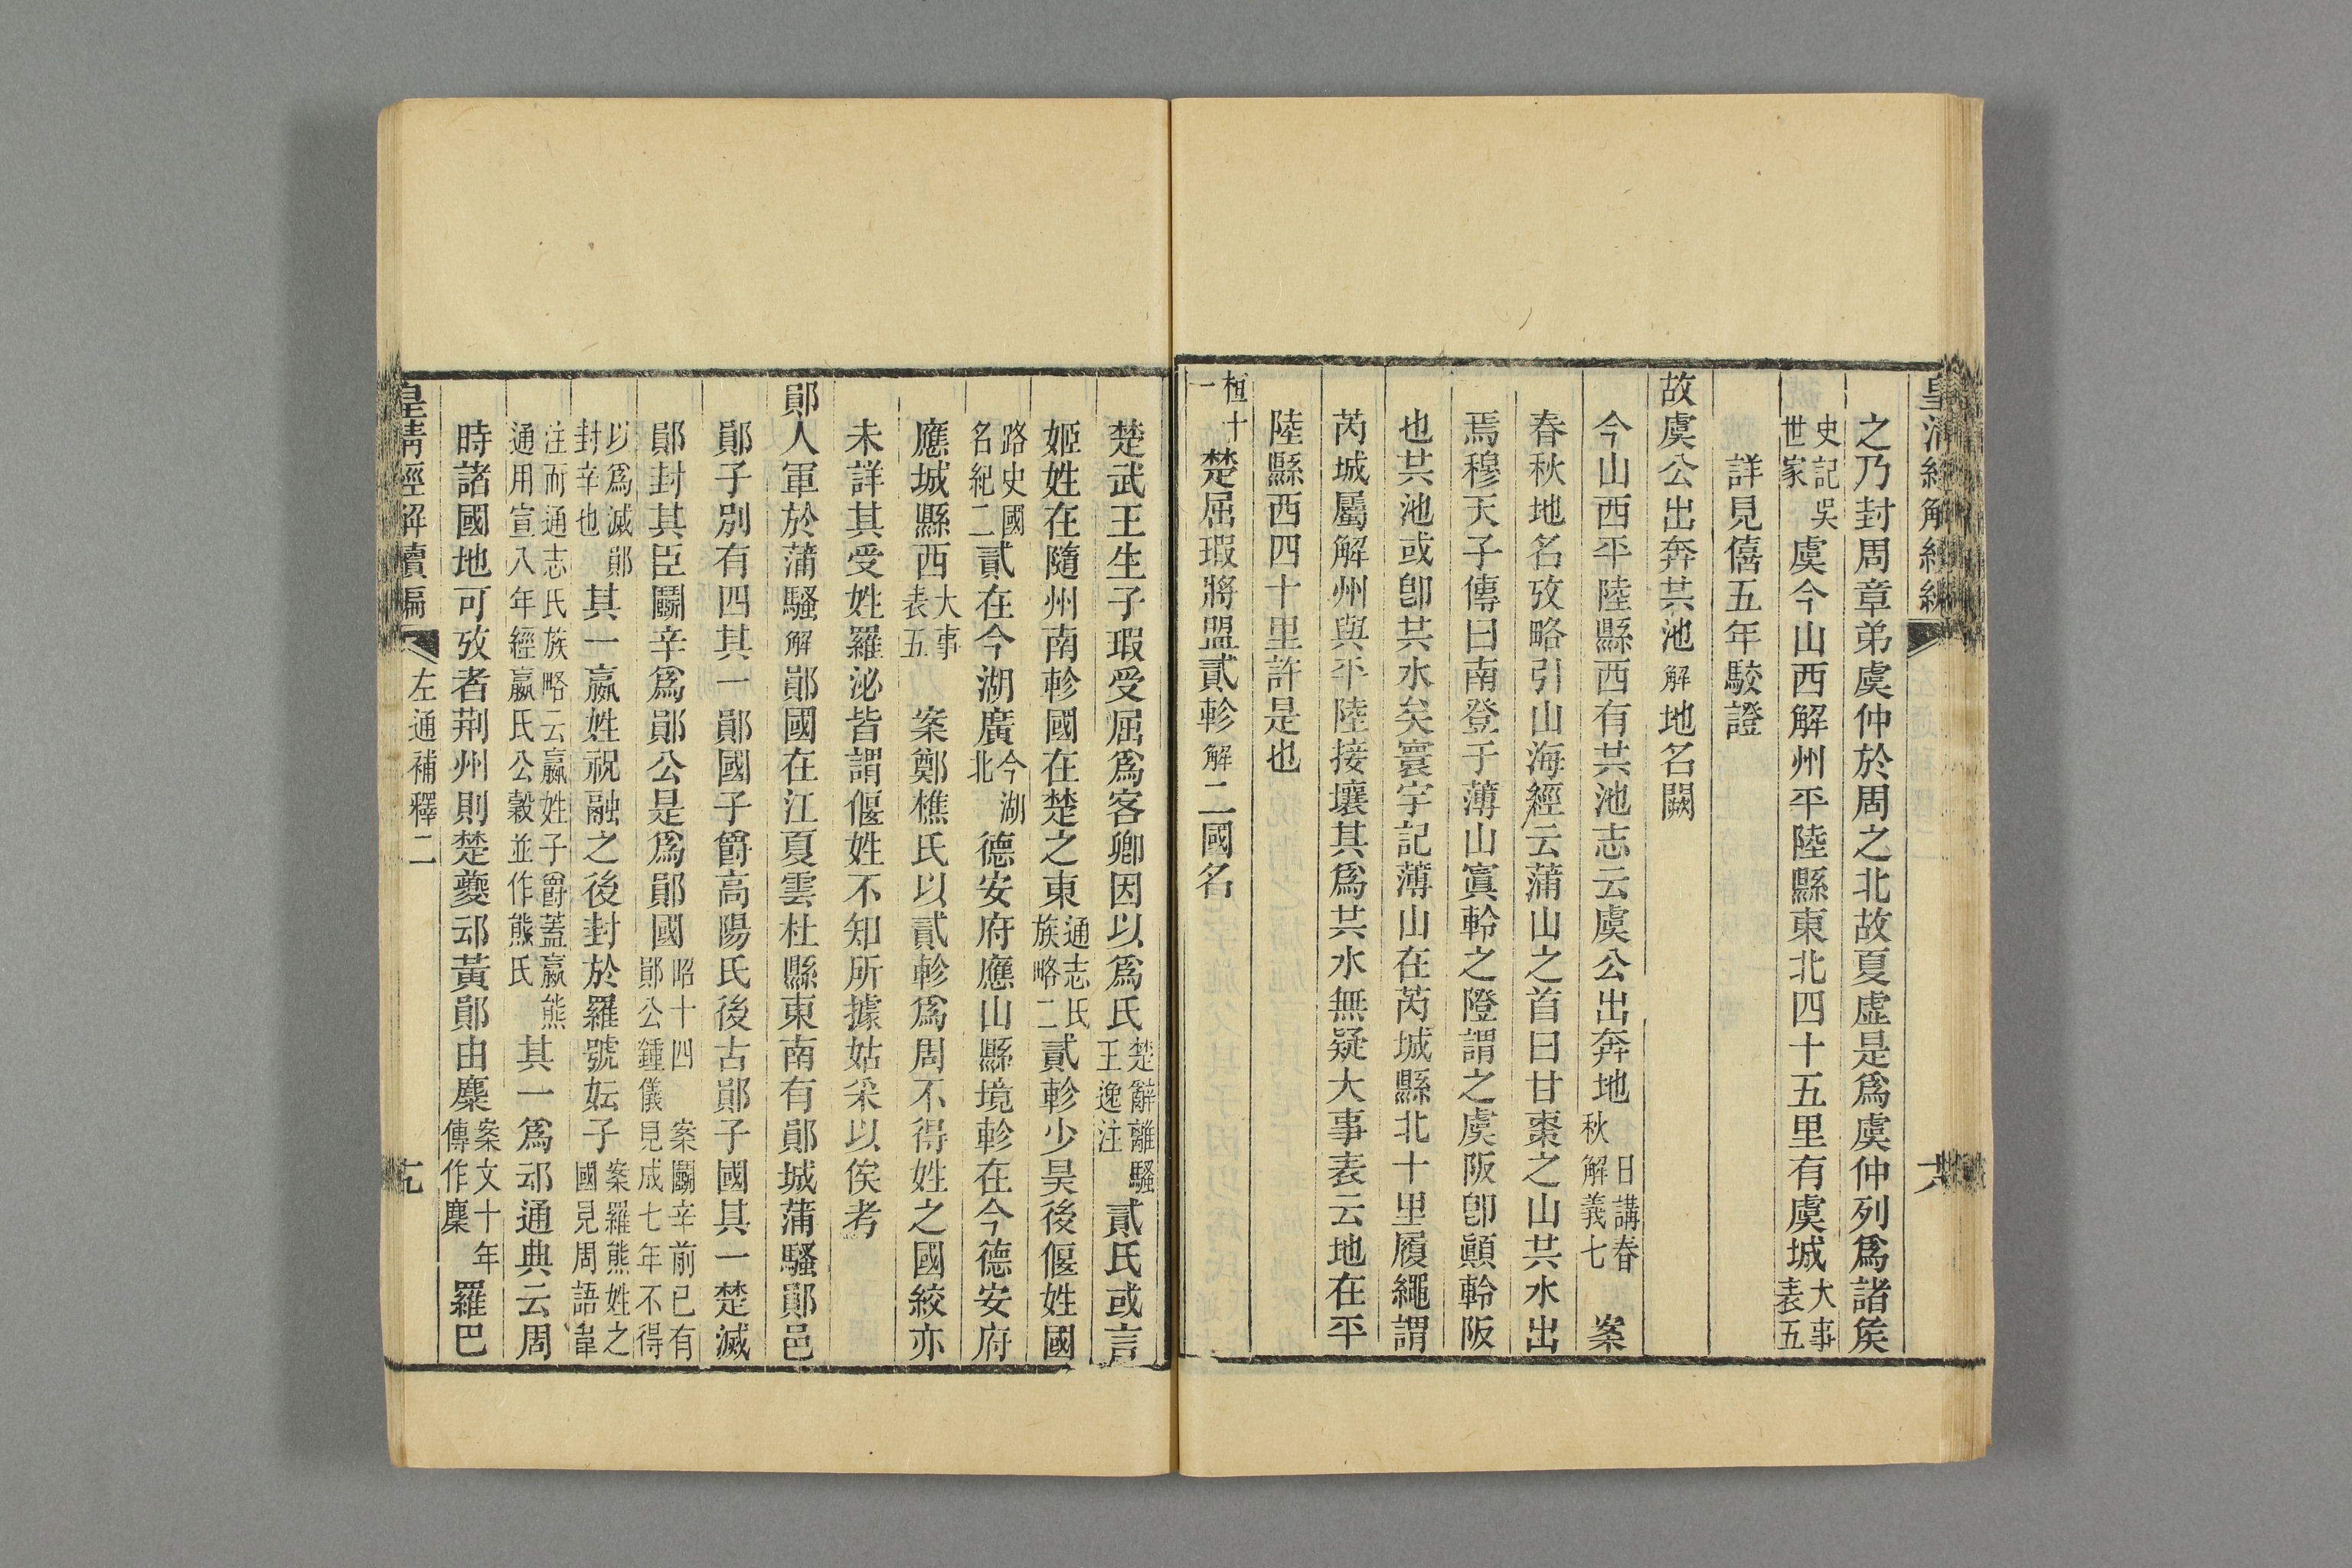 之乃封周章弟虞仲於周之北故夏虛是爲虞仲列爲諸矦
史記吳世家虞今山西解州平陸縣東北四十五里有虞城大事表五
詳見僖五年駮證
故虞公出奔共池解地名闕
今山西平陸縣西有共池志云虞公出奔地日講春秋解義七案
春秋地名攷略引山海經云蒲山之首曰甘棗之山共水出
焉穆天子傳曰南登于薄山窴軨之隥謂之虞阪卽顚軨阪
也共池或卽共水矣寰宇記薄山在芮城縣北十里履繩謂
芮城屬解州與平陸接壤其爲共水無疑大事表云地在平
陸縣西四十里許是也
桓十一楚屈瑕將盟貳軫解二國名
楚武王生子瑕受屈爲客卿因以爲氏楚辭離騷王逸注貳氏或言
姬姓在隨州南軫國在楚之東通志氏族略二貳軫少昊後偃姓國
路史國名紀二貳在今湖廣今湖北德安府應山縣境軫在今德安府
應城縣西大事表五案鄭樵氏以貳軫爲周不得姓之國絞亦
未詳其受姓羅泌皆謂偃姓不知所據姑采以俟考
鄖人軍於蒲騷解鄖國在江夏雲杜縣東南有鄖城蒲騷鄖邑
鄖子別有四其一鄖國子爵高陽氏後古鄖子國其一楚滅
鄖封其臣鬭辛爲鄖公是爲鄖國昭十四案鬭辛前已有鄖公鍾儀見成七年不得
以爲滅鄖封辛也其一嬴姓祝融之後封於羅號妘子案羅熊姓之國見周語韋
注而通志氏族略云嬴姓子爵蓋嬴熊通用宣八年經嬴氏公穀並作熊氏其一爲䢵通典云周
時諸國地可攷者荆州則楚夔䢵黃鄖由麇案文十年傳作麇羅巴
皇淸經解續編
左通補釋二